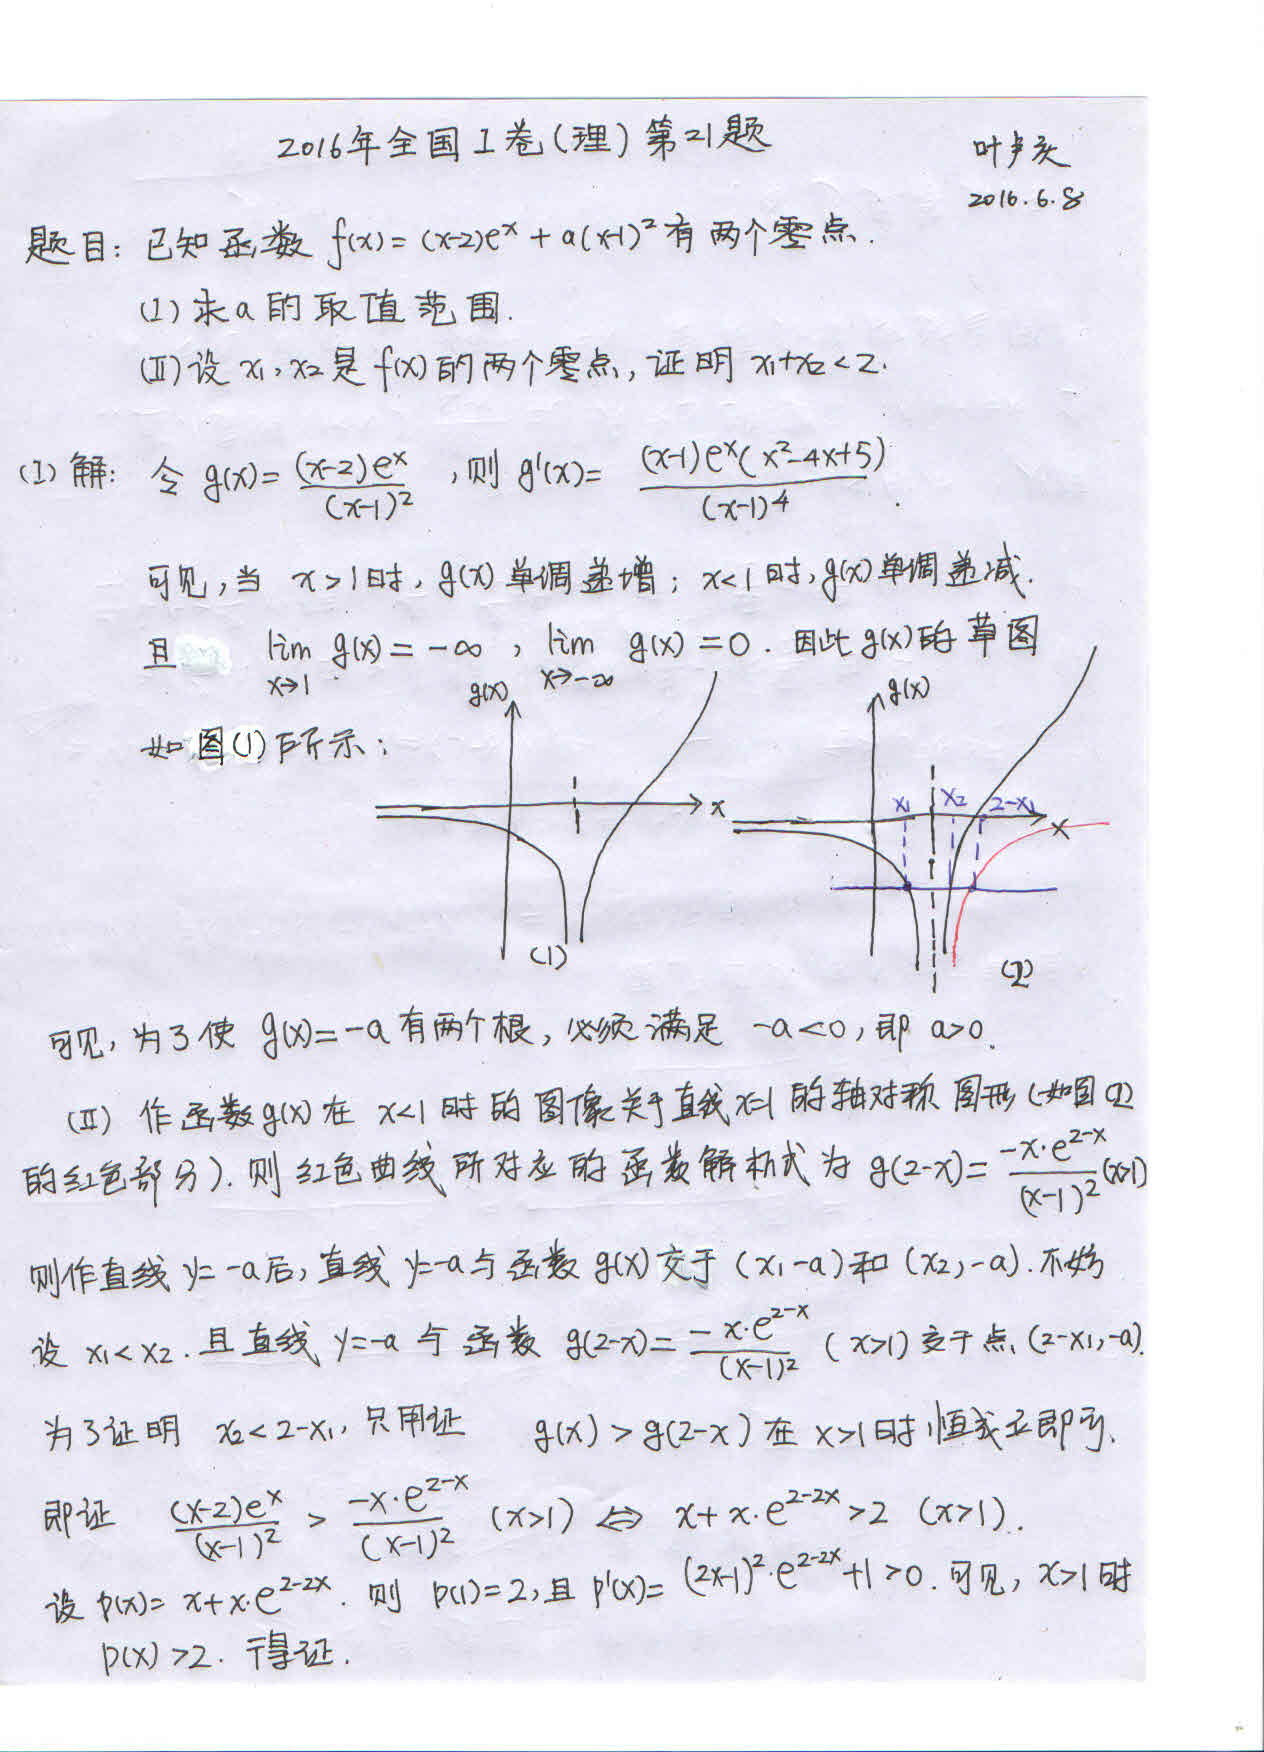 2016年全国I卷(理)第21题
叶卢庆
2016.6.8
题目: 已知函数 f(x)=(x-2)e^x+a(x-1)^2 有两个零点.
(I) 求a的取值范围.
(II) 设 x₁,x₂是f(x)的两个零点, 证明 x₁+x₂<2.
(I) 解: 令 g(x)=\frac{(x-2)e^x}{(x-1)^2}, 则 g'(x)=\frac{(x-1)e^x(x^2-4x+5)}{(x-1)^4}.
可见,当 x>1时, g(x)单调递增; x<1时, g(x)单调递减.
且 \lim_{x→1} g(x)=-∞, \lim_{x→-∞} g(x)=0. 因此g(x)的草图
如图(1)所示:
g(x)
x
(1)
g(x)
x₁ x₂ 2-x₁
x
(2)
可见, 为了使 g(x)=-a有两个根, 必须满足 -a<0, 即 a>0.
(II) 作函数g(x)在 x<1时的图像关于直线x=1的轴对称图形(如图(2)
的红色部分). 则红色曲线所对应的函数解析式为 g(2-x)=\frac{-x·e^{2-x}}{(x-1)^2}(x>1)
则作直线 y=-a后, 直线 y=-a与函数 g(x)交于 (x₁,-a)和 (x₂,-a). 不妨
设 x₁<x₂. 且直线 y=-a 与函数 g(2-x)=\frac{-x·e^{2-x}}{(x-1)^2} (x>1) 交于点 (2-x₁,-a).
为了证明 x₂<2-x₁, 只用证 g(x)>g(2-x)在 x>1时恒成立即可.
即证 \frac{(x-2)e^x}{(x-1)^2} > \frac{-x·e^{2-x}}{(x-1)^2} (x>1) ⇔ x+x·e^{2-2x}>2 (x>1).
设 p(x)=x+x·e^{2-2x}. 则 p(1)=2, 且 p'(x)=(2x-1)^2·e^{2-2x}+1>0. 可见, x>1时
p(x)>2. 得证.